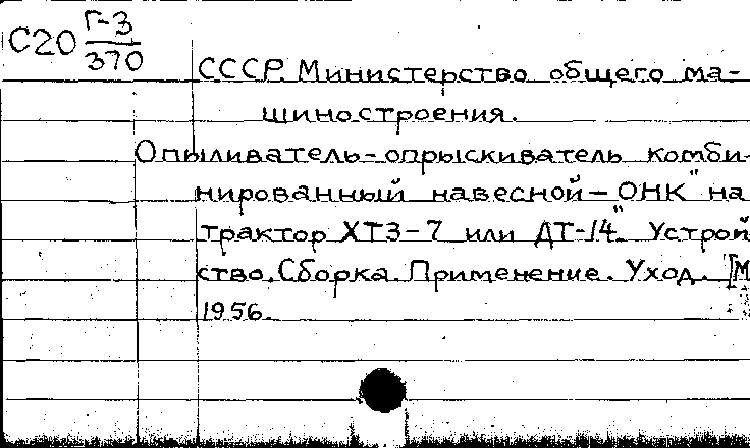 С20 Г-3/370
СССР. Министерство общего ма-
шиностроения.
Опыливатель-опрыскиватель комби-
нированный навесной-ОНК" на
трактор ХТЗ-7 или ДТ-14". Устрой
ство. Сборка. Применение. Уход. [М
1956.